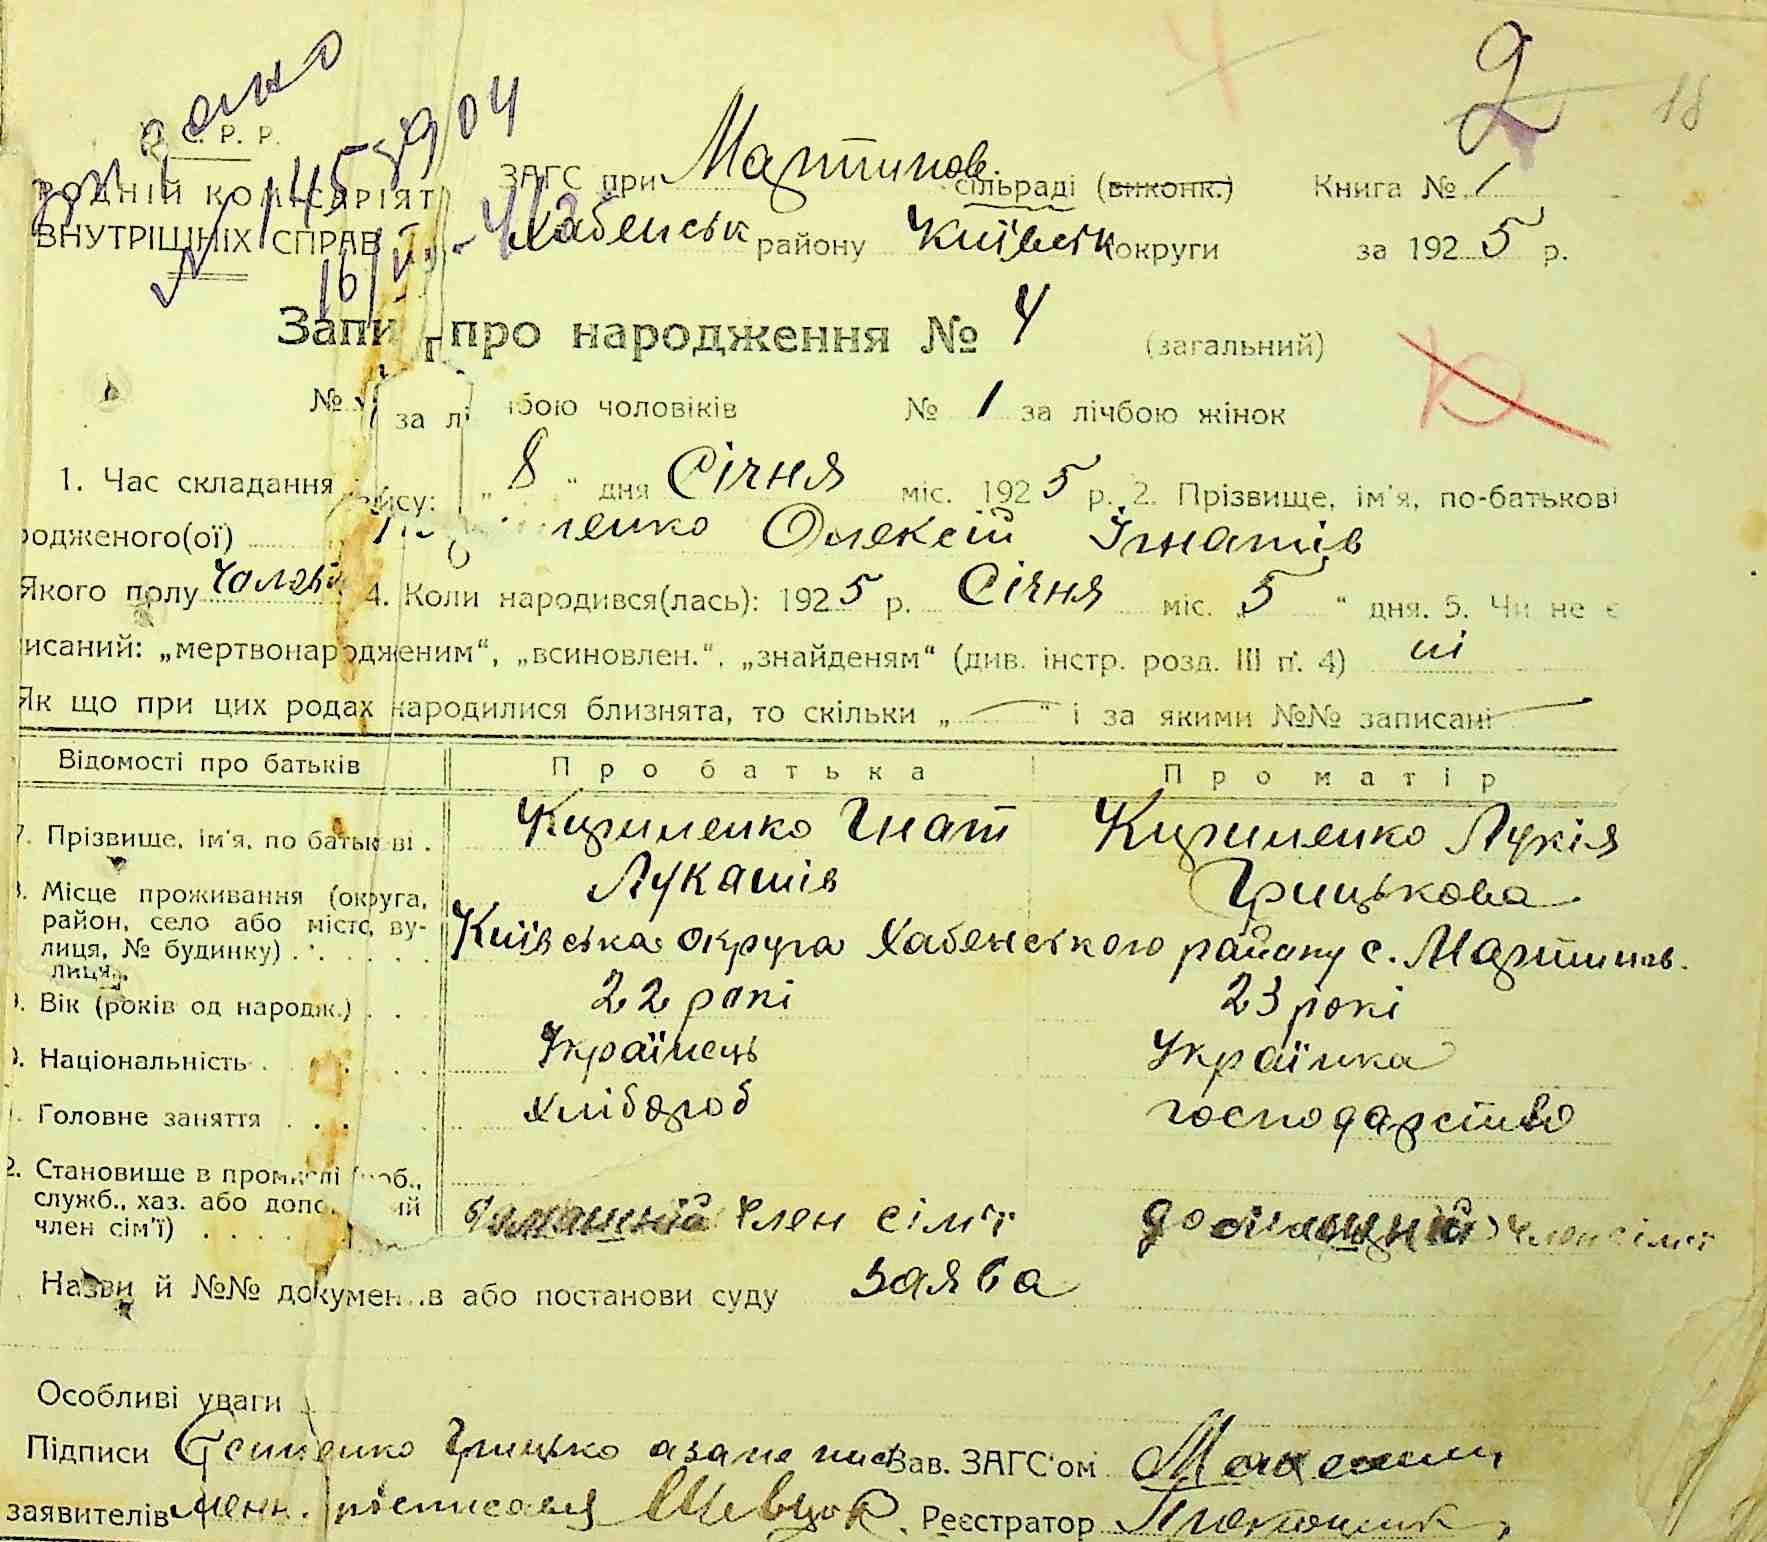 С. Р. Р.
ЗАГС при Мартинов. сільраді (виконк.) Книга № 1
РОДНІЙ КОМІСАРІЯТ
ВНУТРІШНІХ СПРАВ Хабенськ району Київськ округи за 1925 р.
Запи про народження № 4 (загальний)
№ за лі бою чоловіків № 1 за лічбою жінок
1. Час складання пису: „ 8 “ дня Січня міс. 1925 р. 2. Прізвище, ім'я, по-батькові
родженого(ої) енко Олексій Ігнатів
Якого полу чолов 4. Коли народився(лась): 1925 р. Січня міс. „5 “ дня. 5. Чи не є
исаний: „мертвонародженим“, „всиновлен.“, „знайденям“ (див. інстр. розд. III п. 4) ні
Як що при цих родах народилися близнята, то скільки „ “ і за якими №№ записані
Відомості про батьків Про батька Про матір
7. Прізвище, ім'я, по батькові . Куриленко Гнат Куриленко Лукія
Лукашів Грицькова
Місце проживання (округа,
район, село або місто, ву-
лиця, № будинку) . Київська округа Хабенського району с. Мартинов.
лиця.
Вік (років од народж.) . . 22 рокі 23 рокі
Національність . Українець Українка
Головне заняття . . . хлібороб господарство
2. Становище в промислі (роб.,
служб., хаз. або допо ий
член сім'ї) . . . . домашній член сімї домашній член сімї
Назви й №№ докумен в або постанови суду заява
Особливі уваги
Підписи Грицько Зав. ЗАГС'ом
заявителів росписався Шевчук. Реєстратор